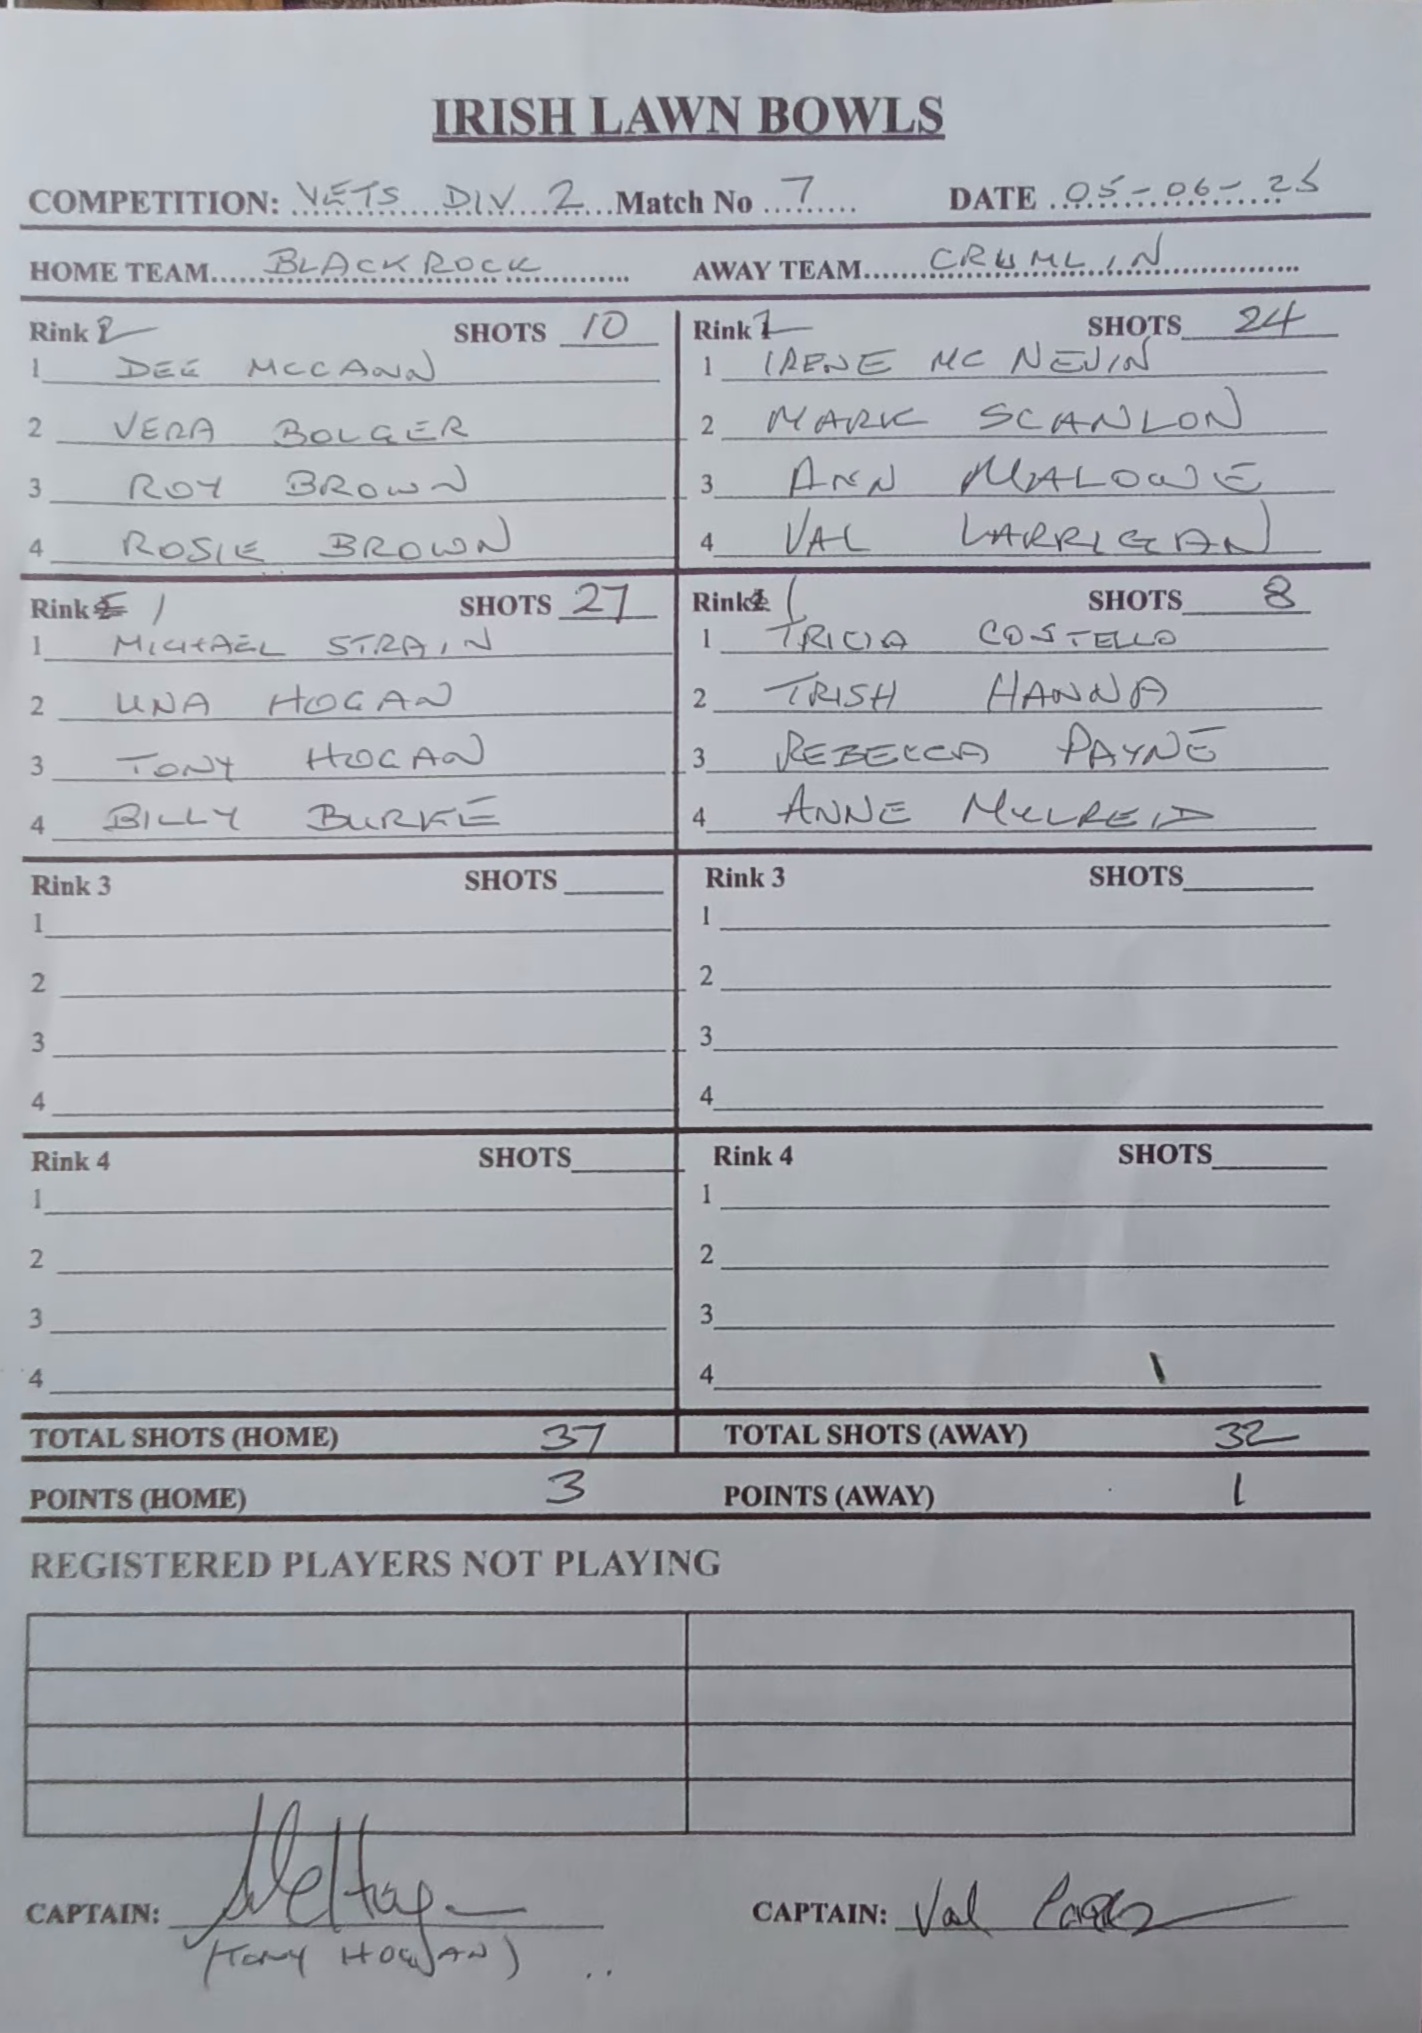 IRISH LAWN BOWLS
COMPETITION: VETS DIV 2 Match No 7 DATE 05-06-25
HOME TEAM BLACKROCK AWAY TEAM CRUMLIN
Rink 2 SHOTS 10
1 DEE MCCANN
2 VERA BOLGER
3 ROY BROWN
4 ROSIE BROWN
Rink 2 SHOTS 24
1 IRENE MC NEVIN
2 MARK SCANLON
3 ANN MALONE
4 VAL LARRIGAN
Rink 1 SHOTS 27
1 MICHAEL STRAIN
2 UNA HOGAN
3 TONY HOGAN
4 BILLY BURKE
Rink 1 SHOTS 8
1 TRICIA COSTELLO
2 TRISH HANNA
3 REBECCA PAYNE
4 ANNE MULREID
Rink 3 SHOTS
1
2
3
4
Rink 3 SHOTS
1
2
3
4
Rink 4 SHOTS
1
2
3
4
Rink 4 SHOTS
1
2
3
4
TOTAL SHOTS (HOME) 37 TOTAL SHOTS (AWAY) 32
POINTS (HOME) 3 POINTS (AWAY) 1
REGISTERED PLAYERS NOT PLAYING
CAPTAIN: CAPTAIN: Val
(TONY HOGAN)